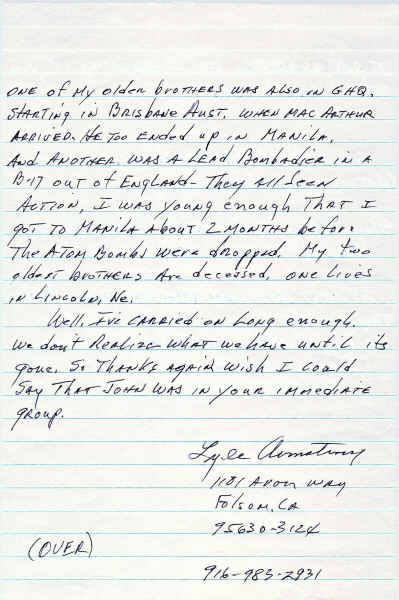 ONE OF MY OLDER BROTHERS WAS ALSO IN GHQ,
STARTING IN BRISBANE AUST. WHEN MAC ARTHUR
ARRIVED. HE TOO ENDED UP IN MANILA.
AND ANOTHER WAS A LEAD BOMBADIER IN A
B-17 OUT OF ENGLAND - THEY ALL SEEN
ACTION, I WAS YOUNG ENOUGH THAT I
GOT TO MANILA ABOUT 2 MONTHS BEFORE
THE ATOM BOMBS WERE DROPPED. MY TWO
OLDEST BROTHERS ARE DECESSED, ONE LIVES
IN LINCOLN, NE.
WELL, I'VE CARRIED ON LONG ENOUGH.
WE DON'T REALIZE WHAT WE HAVE UNTIL ITS
GONE. SO THANKS AGAIN WISH I COULD
SAY THAT JOHN WAS IN YOUR IMMEDIATE
GROUP.
Lyle Armstrong
WAY
FOLSOM, CA
95630-3124
(OVER)
916-983-2931